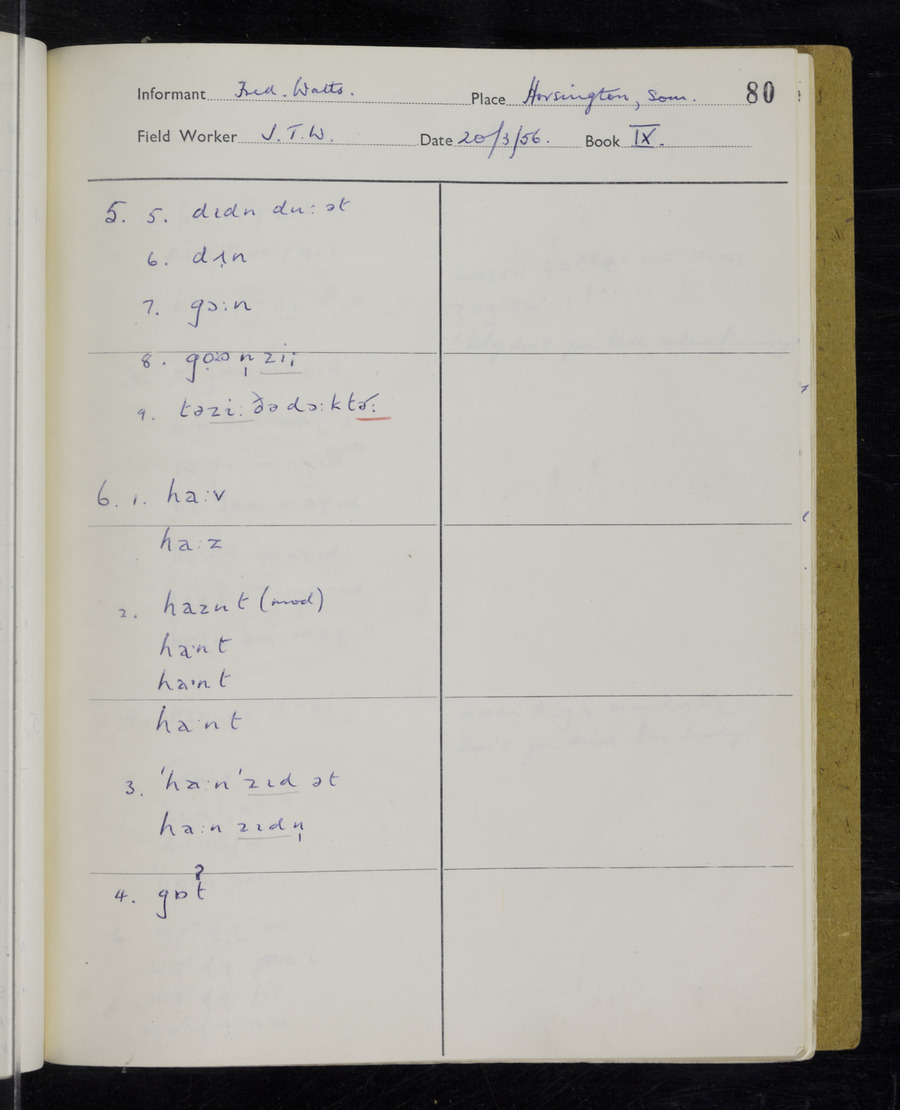 Informant Fred. Watts. Place Horsington, Som. 80
Field Worker J.T.W. Date 20/3/56. Book IX.
5. 5. dɪdn du:ət
6. dɪ̣n
7. gɔ:n
8. n̩ zi:
9. təzi: ðə dɔ:ktə:
6. 1. ha:v
ha:z
2. haznt (mod)
ha:nt
haˑnt
ha:nt
3. 'ha:n'zɪd ət
ha:n zɪdn̩
4. gɒt